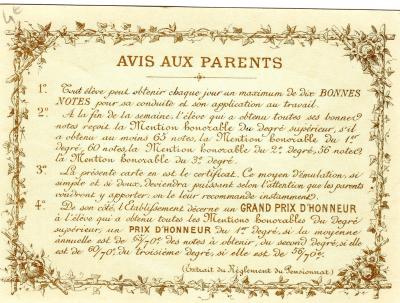 AVIS AUX PARENTS
1º. Tout élève peut obtenir chaque jour un maximum de dix BONNES
NOTES pour sa conduite et son application au travail.
2º. A la fin de la semaine, l'élève qui a obtenu toutes ses bonnes
notes reçoit la Mention honorable du degré supérieur, s'il
a obtenu au moins 65 notes, la Mention honorable du 1er
degré, 60 notes, la Mention honorable du 2e degré, 56 notes
la Mention honorable du 3e degré.
3º. La présente carte en est le certificat. Ce moyen d'émulation, si
simple et si doux, deviendra puissant selon l'attention que les parents
voudront y apporter, on le leur recommande instamment.
4º. De son côté, l'Etablissement décerne un GRAND PRIX D'HONNEUR
à l'élève qui a obtenu toutes les Mentions honorables du degré
supérieur, un PRIX D'HONNEUR du 1er degré, si la moyenne
annuelle est de 65/70es des notes à obtenir, du second degré, si elle
est de 60/70es, du troisième degré, si elle est de 56/70es.
(Extrait du Réglement du Pensionnat)